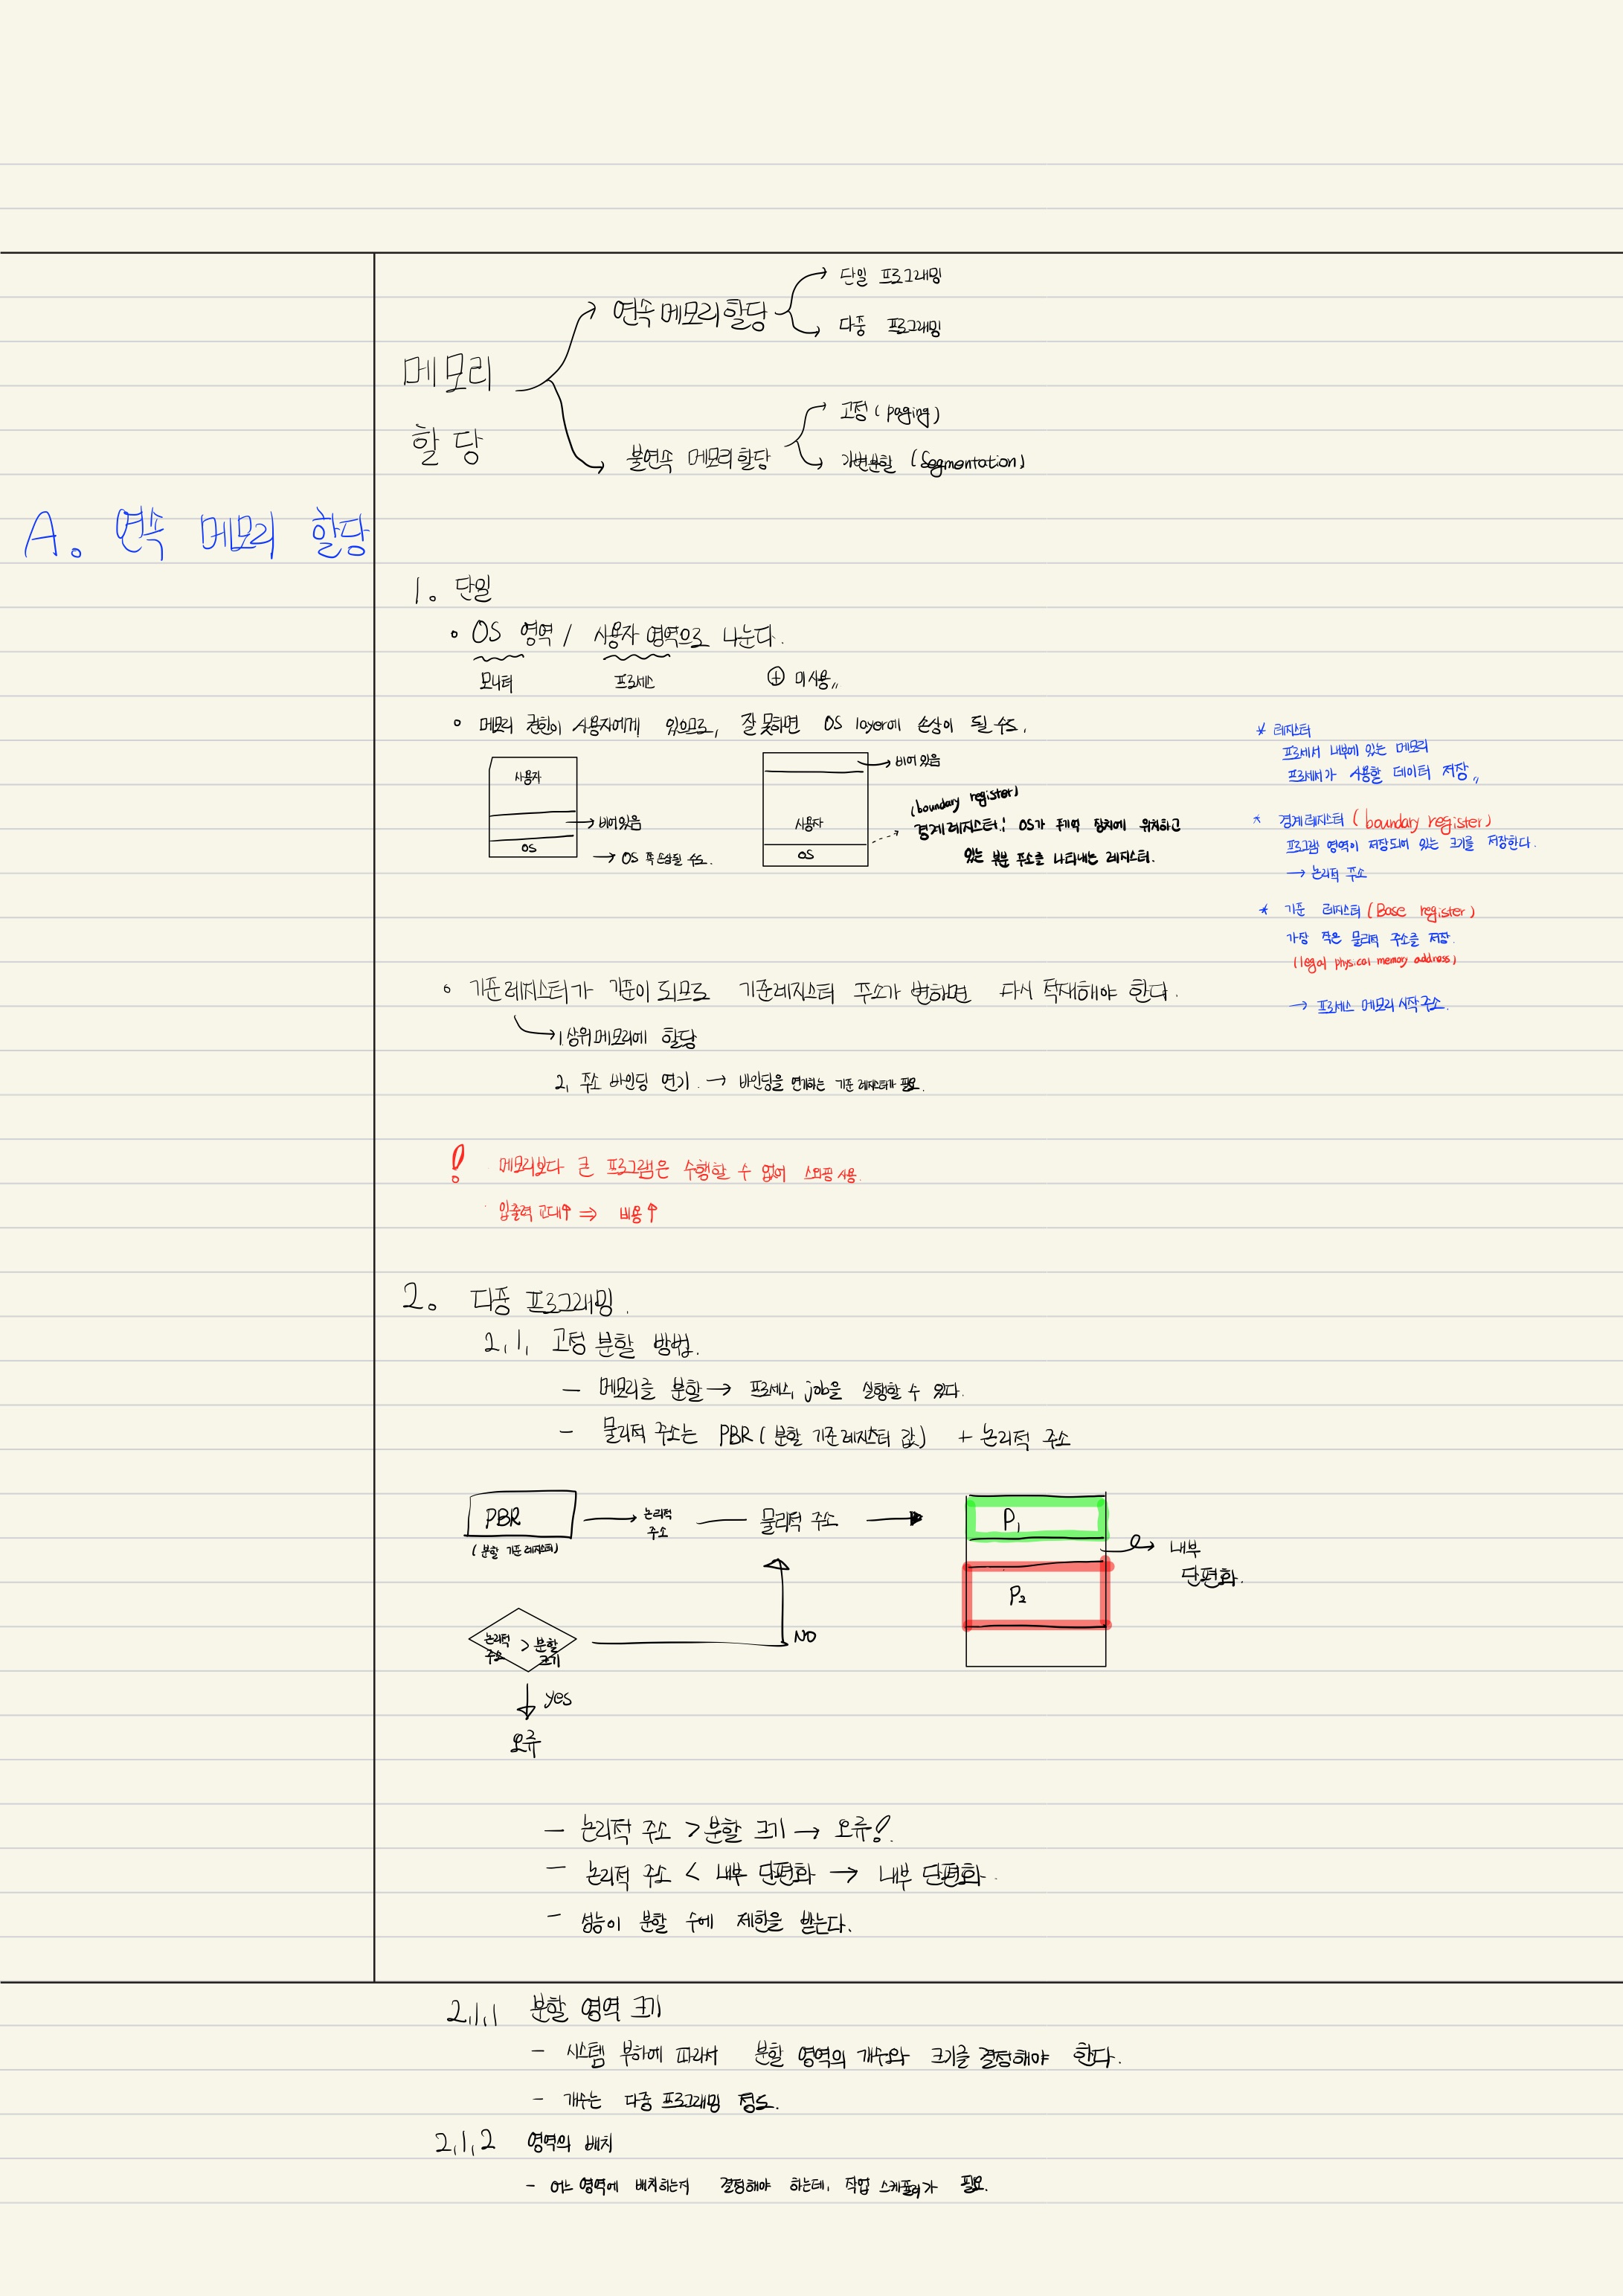 메모리
할당
연속 메모리 할당
단일 프로그래밍
다중 프로그래밍
불연속 메모리 할당
고정 (paging)
가변분할 (Segmentation)
A. 연속 메모리 할당
1. 단일
OS 영역 / 사용자 영역으로 나눈다.
모니터 프로세스 ⊕ 미사용
메모리 권한이 사용자에게 있으므로, 잘 못하면 OS layer에 손상이 될 수도.
사용자
→ 비어있음
OS
→ OS 쪽 손상될 수도.
→ 비어 있음
사용자
OS
(boundary register)
경계 레지스터: OS가 기억 장치에 위치하고
있는 부분 주소를 나타내는 레지스터.
* 레지스터
프로세서 내부에 있는 메모리
프로세서가 사용할 데이터 저장
* 경계 레지스터 (boundary register)
프로그램 영역이 저장되어 있는 크기를 저장한다.
→ 논리적 주소
* 기준 레지스터 (Base register)
가장 작은 물리적 주소를 저장.
(legal physical memory address)
→ 프로세스 메모리 시작 주소.
기준 레지스터가 기준이 되므로 기준레지스터 주소가 변하면 다시 적재해야 한다.
→ 1. 상위 메모리에 할당
2. 주소 바인딩 연기. → 바인딩을 연기하는 기준 레지스터가 필요.
! 메모리보다 큰 프로그램은 수행할 수 없어 스와핑 사용.
입출력 교대↑ ⇒ 비용↑
2. 다중 프로그래밍.
2.1. 고정 분할 방법.
- 메모리를 분할 → 프로세스, job을 실행할 수 있다.
- 물리적 주소는 PBR (분할 기준 레지스터 값) + 논리적 주소
PBR
(분할 기준 레지스터)
논리적
주소
물리적 주소
P1
내부
단편화.
P2
논리적
주소 > 분할
크기
NO
yes
오류
- 논리적 주소 > 분할 크기 → 오류!
- 논리적 주소 < 내부 단편화 → 내부 단편화.
- 성능이 분할 수에 제한을 받는다.
2.1.1 분할 영역 크기
- 시스템 부하에 따라서 분할 영역의 개수와 크기를 결정해야 한다.
- 개수는 다중 프로그래밍 정도.
2.1.2 영역의 배치
- 어느 영역에 배치하는지 결정해야 하는데, 작업 스케줄러가 필요.